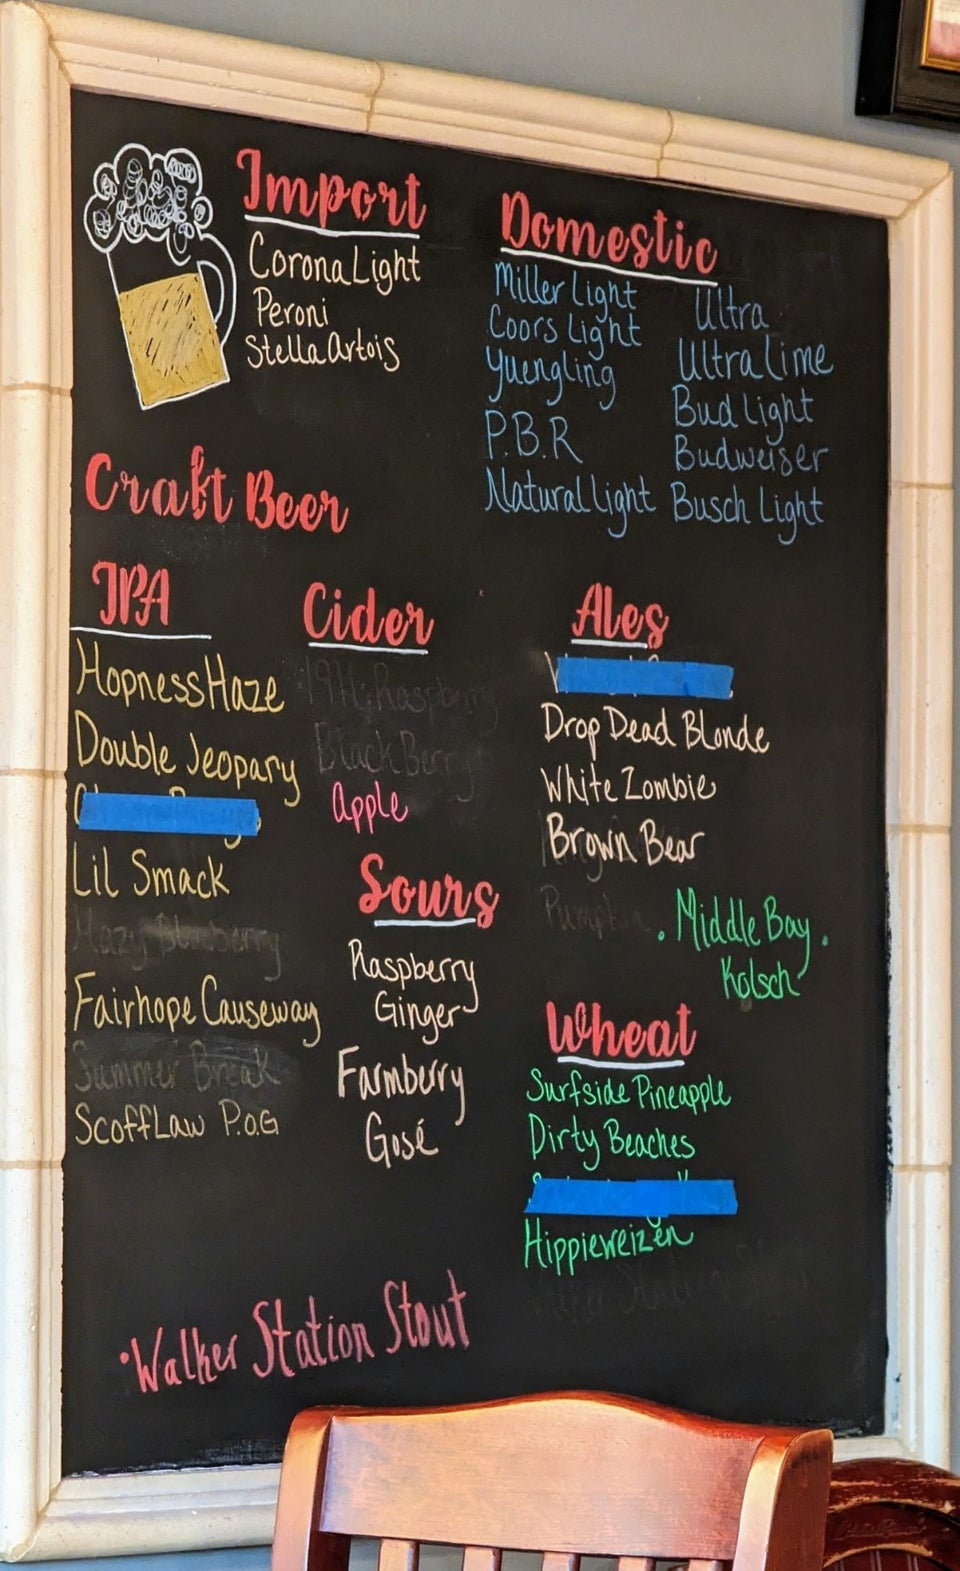 Import
Corona Light
Peroni
Stella Artois
Domestic
Miller Light
Coors Light
Yuengling
P.B.R
Natural Light
Ultra
Ultra Lime
Bud Light
Budweiser
Busch Light
Craft Beer
IPA
Hopness Haze
Double Jeopary
Lil Smack
Hazy Blueberry
Fairhope Causeway
Summer Break
Scofflaw P.O.G
Cider
Raspberry
BlackBerry
Apple
Sours
Raspberry
Ginger
Farmberry
Gosé
Ales
Drop Dead Blonde
White Zombie
Brown Bear
Pumpkin
. Middle Bay .
Kolsch
Wheat
Surfside Pineapple
Dirty Beaches
Hippieweizen
Walker Station Stout
·Walker Station Stout